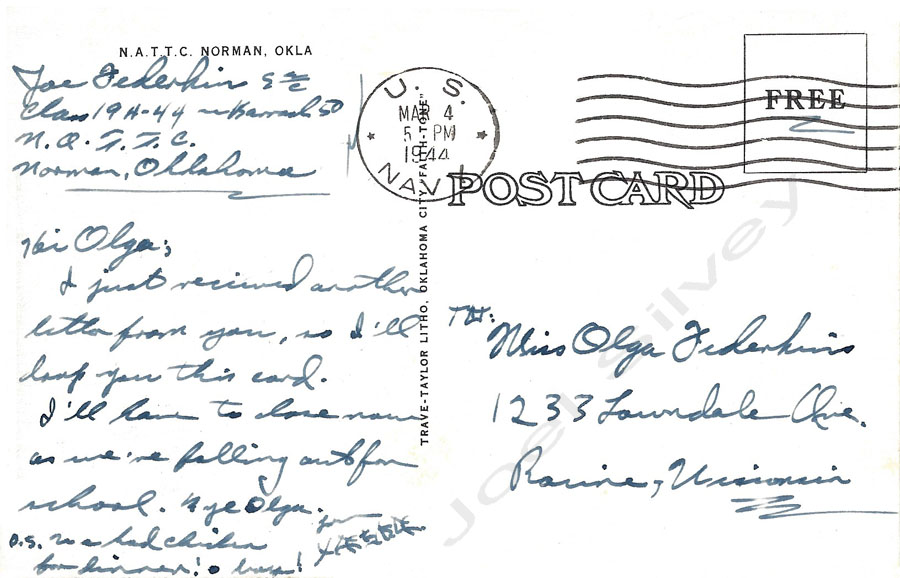 N.A.T.T.C. NORMAN, OKLA
Joe Federkin S 2/c
Class 19A-44 - Barrack 50
N.A.T.T.C.
Norman, Oklahoma
Hi Olga;
I just recieved another
letter from you, so I'll
drop you this card.
I'll have to close now
as we're falling out for
school. Bye Olga.
P.S. We had chicken
for dinner! Oh boy!
U.S.
MAR 4
5 PM
1944
NAVY
FREE
POST CARD
TRAVE-TAYLOR LITHO, OKLAHOMA CITY "FAITH-TONE"
TO:
Miss Olga Federkins
1233 Lawndale Ave.
Racine, Wisconsin
Joel Silvey